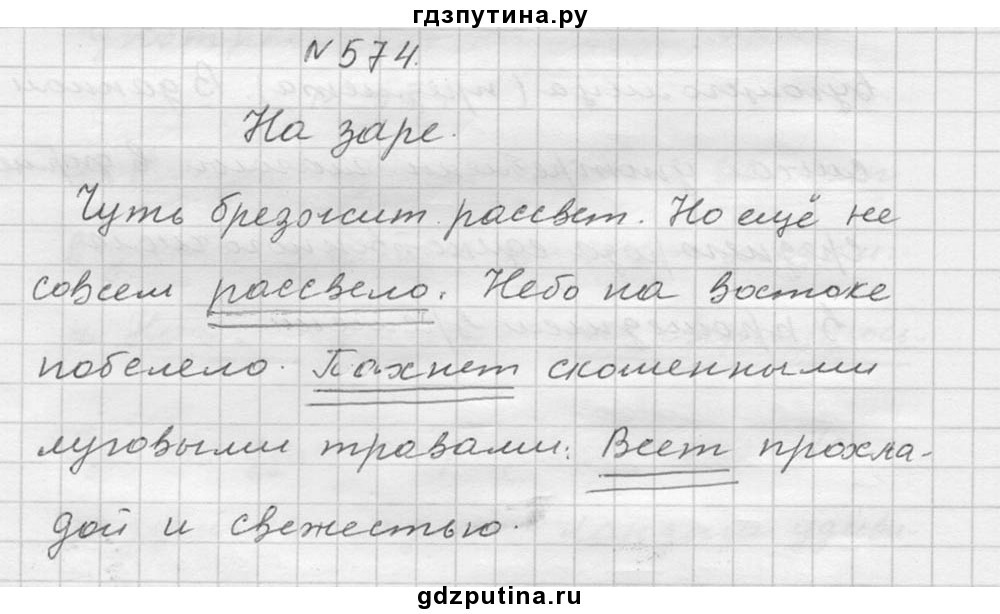 гдзпутина.ру
N 574.
На заре.
Чуть брезжит рассвет. Но ещё не
совсем рассвело. Небо на востоке
побелело. Пахнет скошенными
луговыми травами. Веет прохла-
дой и свежестью.
gdzputina.ru